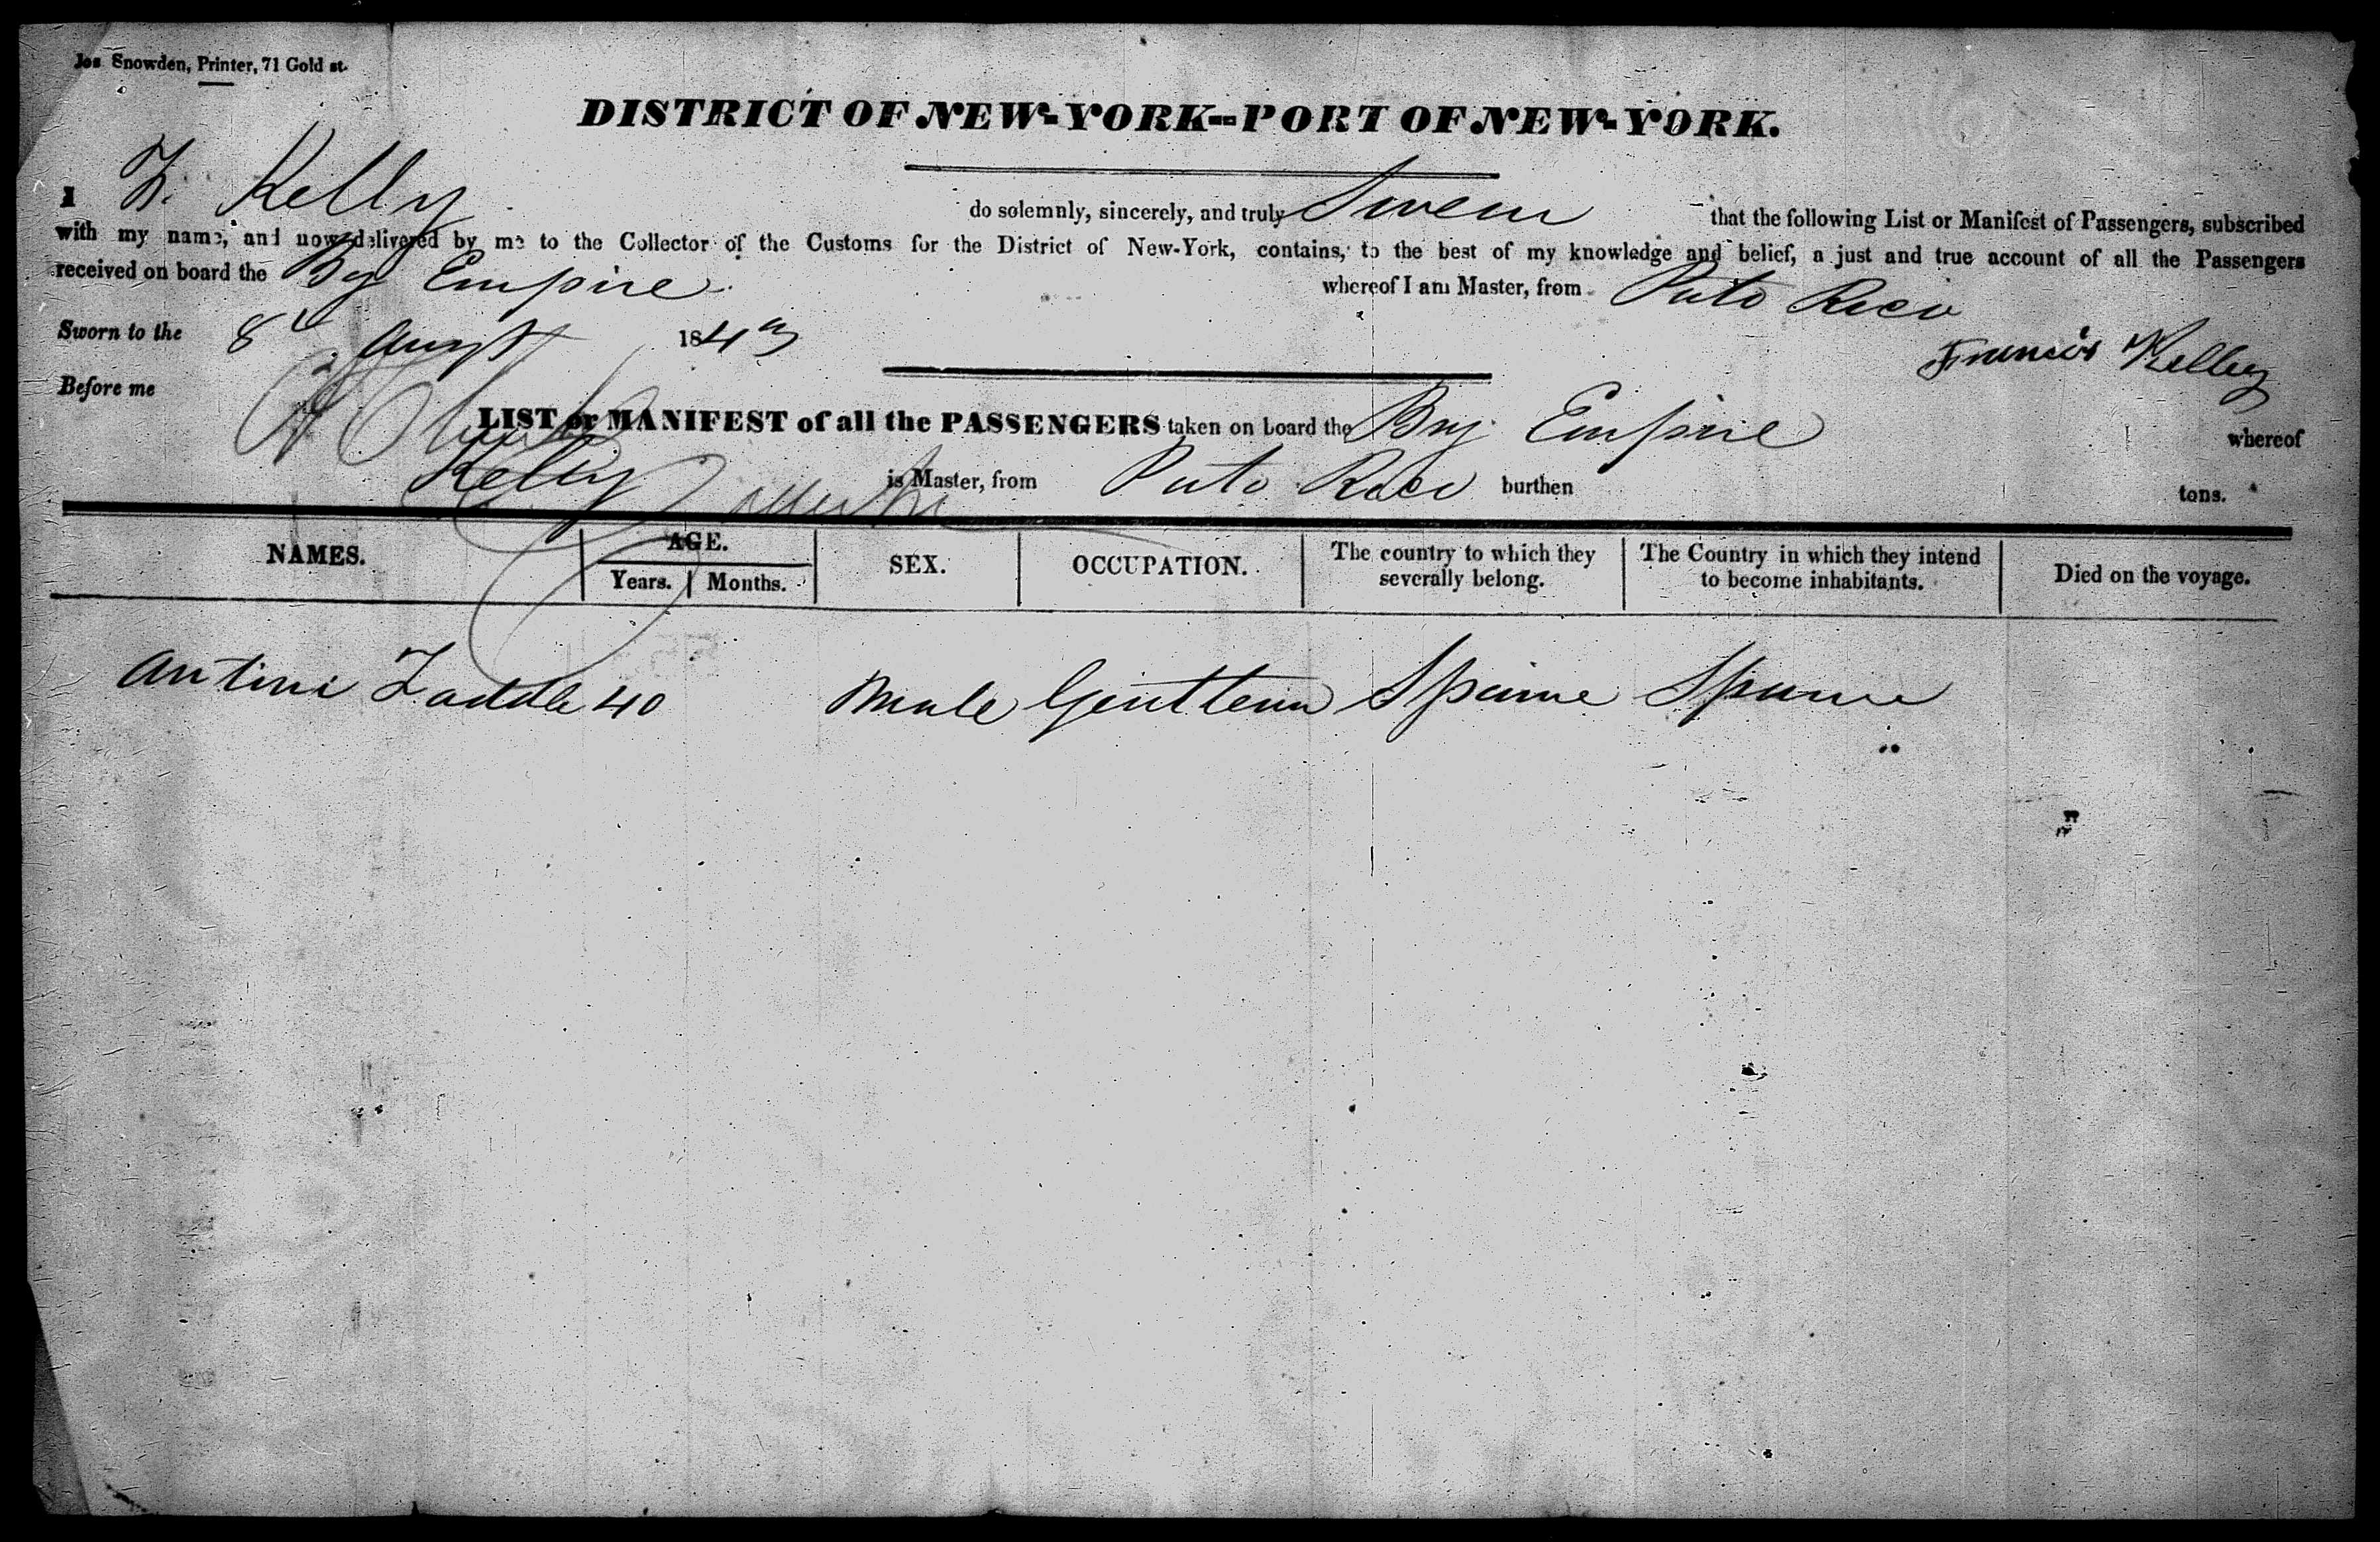 Jos Snowden, Printer, 71 Gold st.
DISTRICT OF NEW-YORK--PORT OF NEW-YORK.
I F. Kelly do solemnly, sincerely, and truly Swear that the following List or Manifest of Passengers, subscribed
with my name, and now delivered by me to the Collector of the Customs for the District of New-York, contains, to the best of my knowledge and belief, a just and true account of all the Passengers
received on board the Bg Empire whereof I am Master, from Puto Rico
Sworn to the 8 Augst 1843
Francis Kelley
Before me
LIST or MANIFEST of all the PASSENGERS taken on board the Brg Empire whereof
Kelly is Master, from Puto Rico burthen tons.
NAMES. AGE. Years. Months. SEX. OCCUPATION. The country to which they severally belong. The Country in which they intend to become inhabitants. Died on the voyage.
Antini 40 Male Gentlem Spaine Spaine